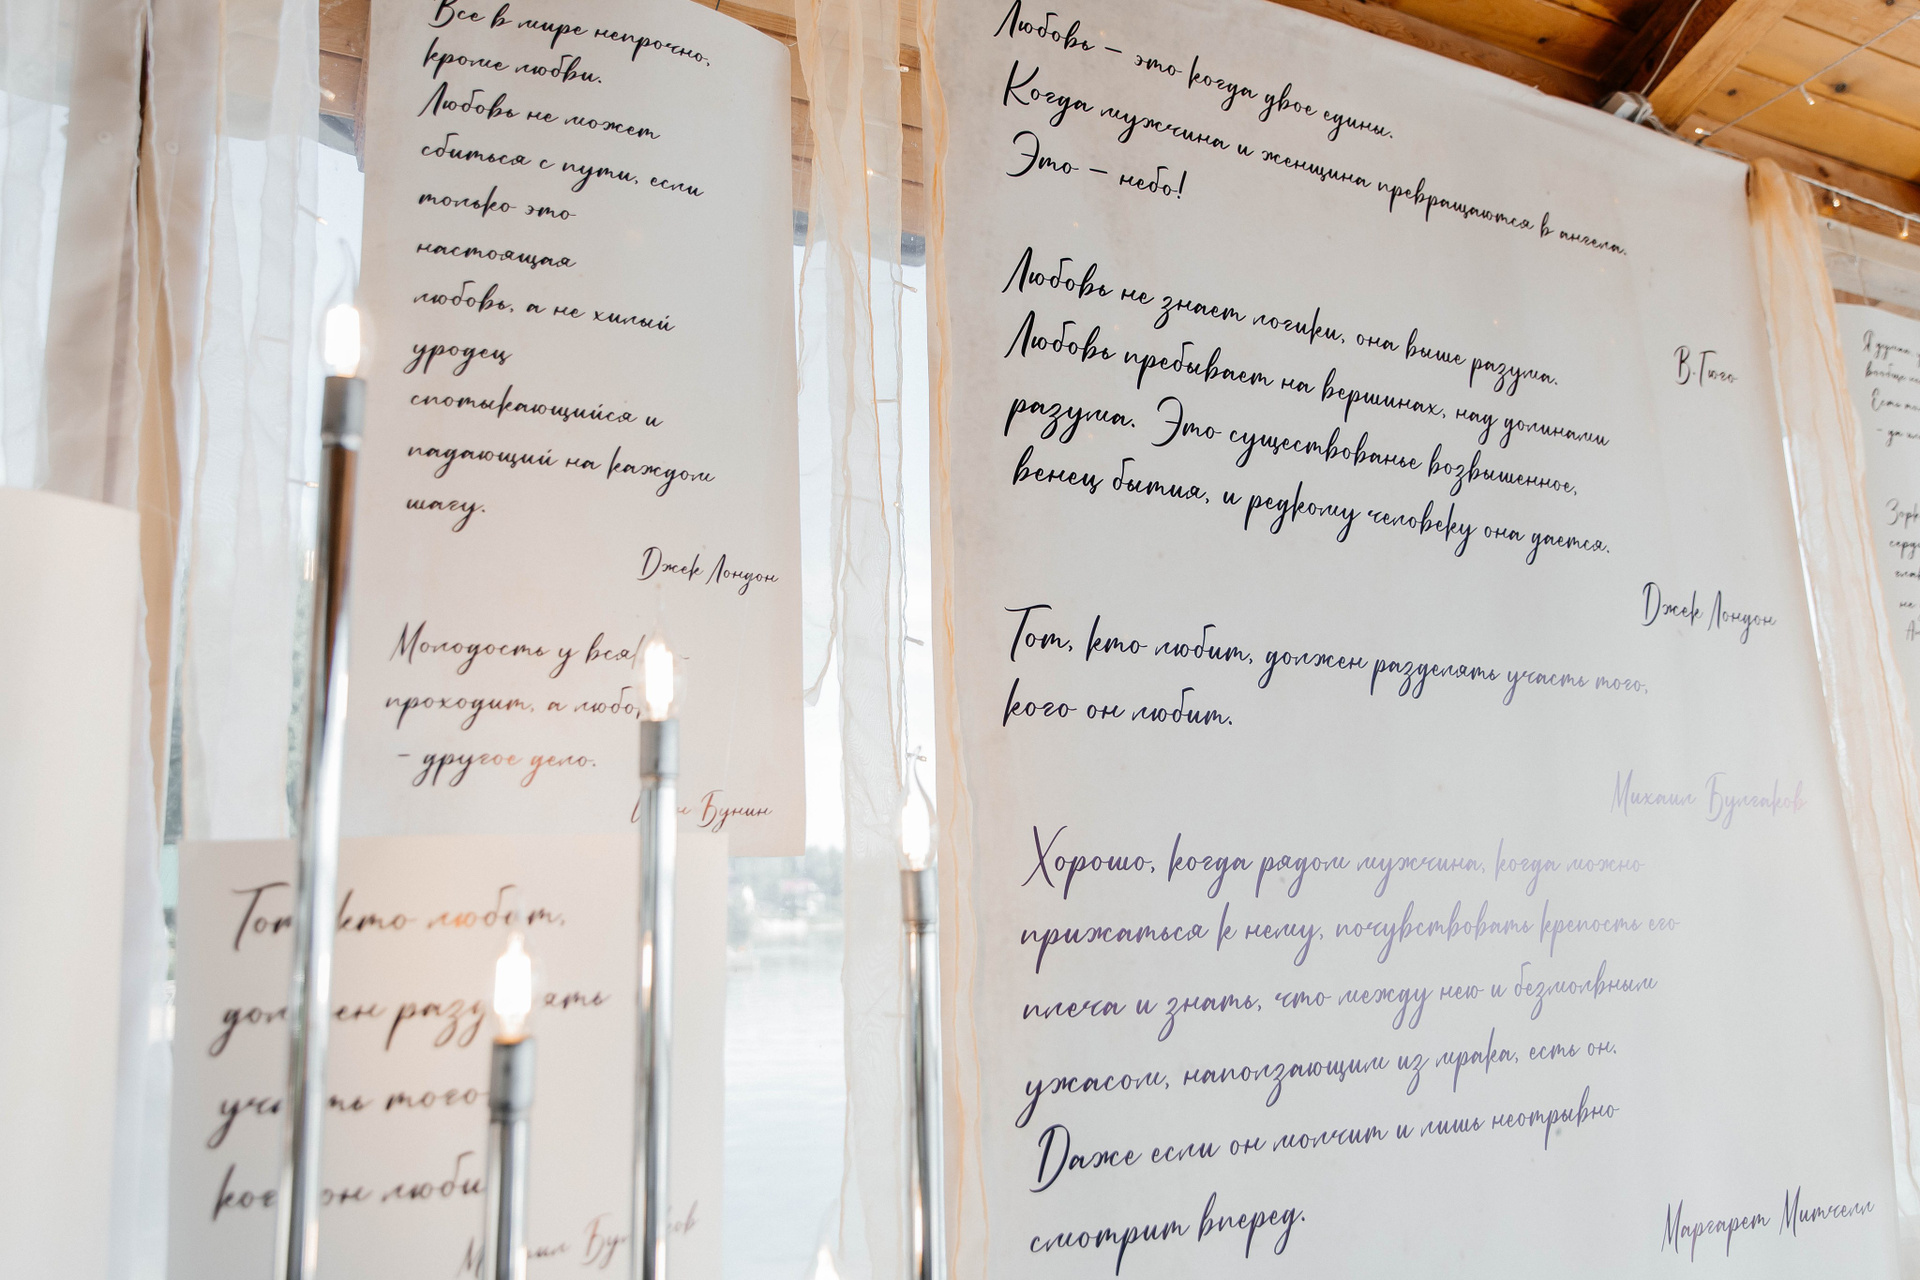 Все в мире непрочно,
кроме любви.
Любовь не может
сбиться с пути, если
только это
настоящая
любовь, а не хилый
уродец
спотыкающийся и
падающий на каждом
шагу.
Джек Лондон
Молодость у
проходит, а
- другое дело.
Бунин
кто любит,
того
Любовь – это когда двое едины.
Когда мужчина и женщина превращаются в ангела.
Это – небо!
В.Гюго
Любовь не знает логики, она выше разума.
Любовь пребывает на вершинах, над долинами
разума. Это существованье возвышенное,
венец бытия, и редкому человеку она дается.
Джек Лондон
Тот, кто любит, должен разделять участь того,
кого он любит.
Михаил Булгаков
Хорошо, когда рядом мужчина, когда можно
прижаться к нему, почувствовать крепость его
плеча и знать, что между нею и безмолвным
ужасом, наползающим из мрака, есть он.
Даже если он молчит и лишь неотрывно
смотрит вперед.
Маргарет Митчелл